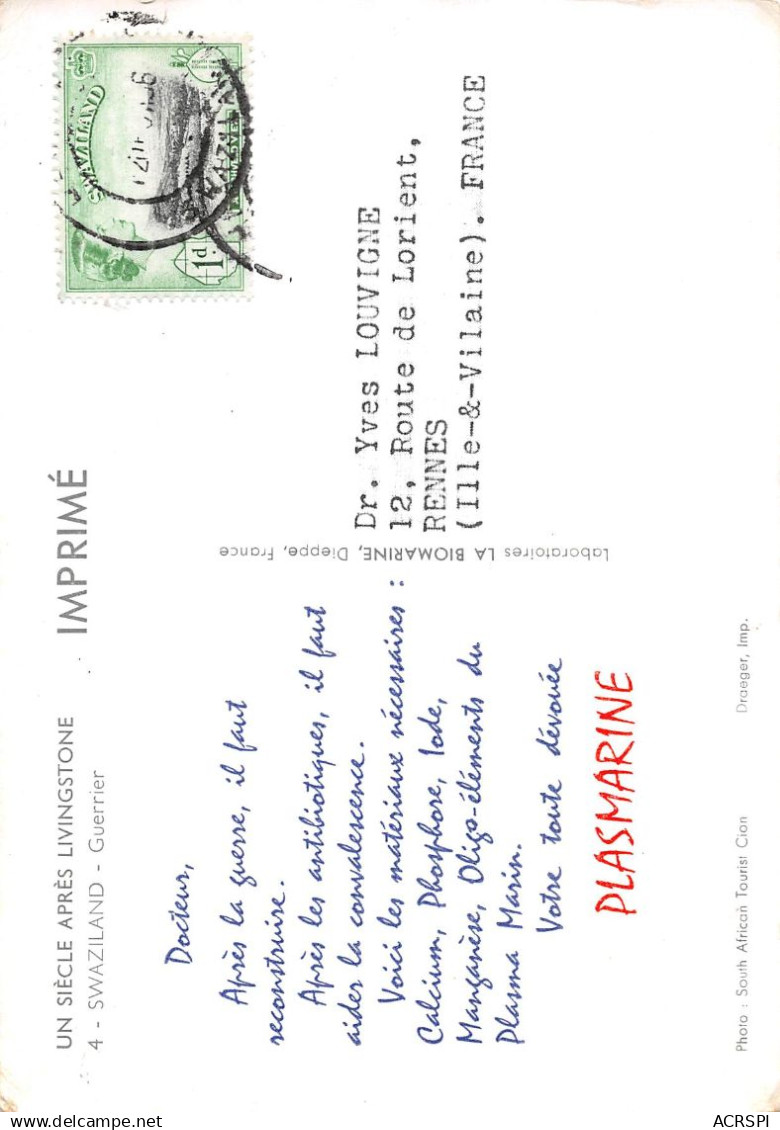 UN SIÈCLE APRÈS LIVINGSTONE
4 - SWAZILAND - Guerrier
IMPRIMÉ
Docteur,
Après la guerre, il faut
reconstruire.
Après les antibiotiques, il faut
aider la convalescence.
Voici les matériaux nécessaires :
Calcium, Phosphore, Iode,
Manganèse, Oligo-éléments du
Plasma Marin.
Votre toute dévouée
PLASMARINE
Photo : South African Tourist Cion
Draeger, Imp.
Laboratoires LA BIOMARINE, Dieppe, France
SWAZILAND
1d.
Dr. Yves LOUVIGNE
12, Route de Lorient,
RENNES
(Ille-&-Vilaine). FRANCE
ACRSPI